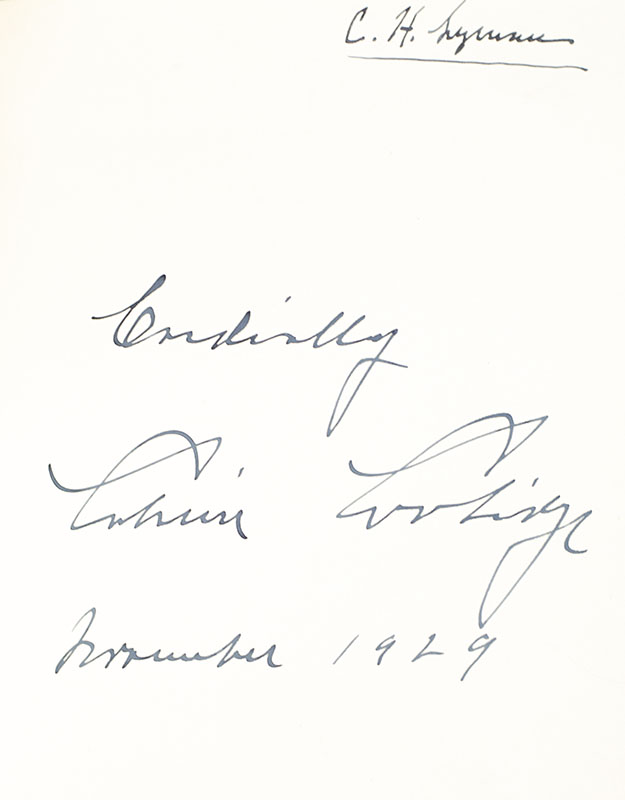 C. H. Lyman
Cordially
Calvin Coolidge
November 1929